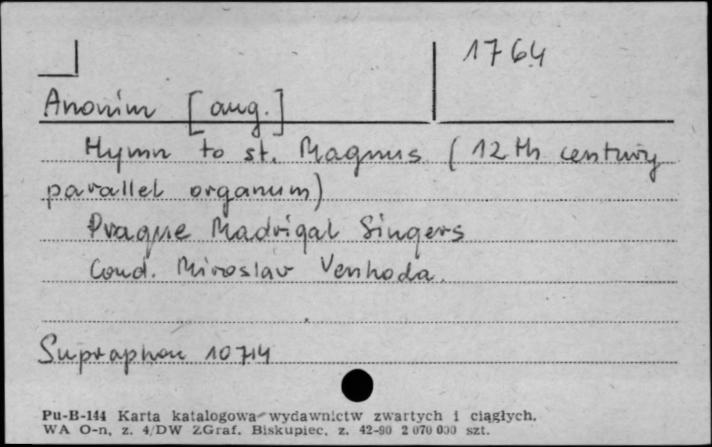 1764
Anonim [ang.]
Hymn to st. Magnus (12th century
parallel organum)
Prague Madrigal Singers
Cond. Miroslav Venhoda.
Supraphon 10714
Pu-B-144 Karta katalogowa wydawnictw zwartych i ciągłych.
WA O-n, z. 4/DW ZGraf. Biskupiec, z. 42-80 2 070 000 szt.